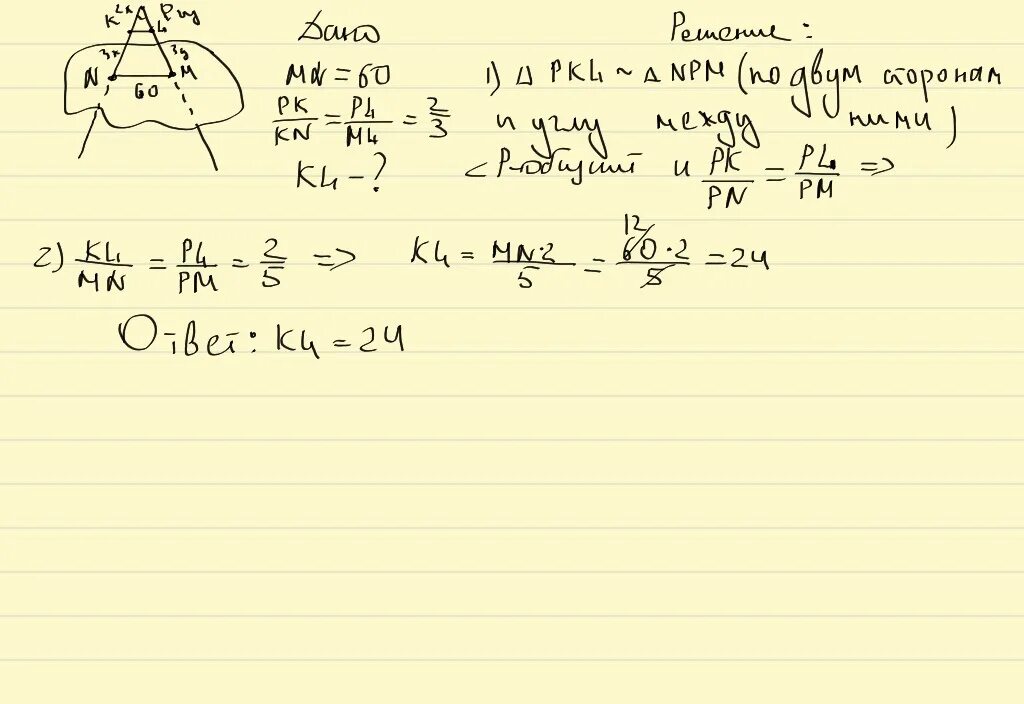 Дано
Решение:
K 2x P 2y L
3x 3y
N M
60
MN = 60
PK/KN = PL/ML = 2/3
KL - ?
1) Δ PKL ~ Δ NPM (по двум сторонам
и углу между ними)
< P-общий и PK/PN = PL/PM =>
2) KL/MN = PL/PM = 2/5 => KL = MN·2/5 = 60·2/5 = 24
12
Ответ: KL = 24